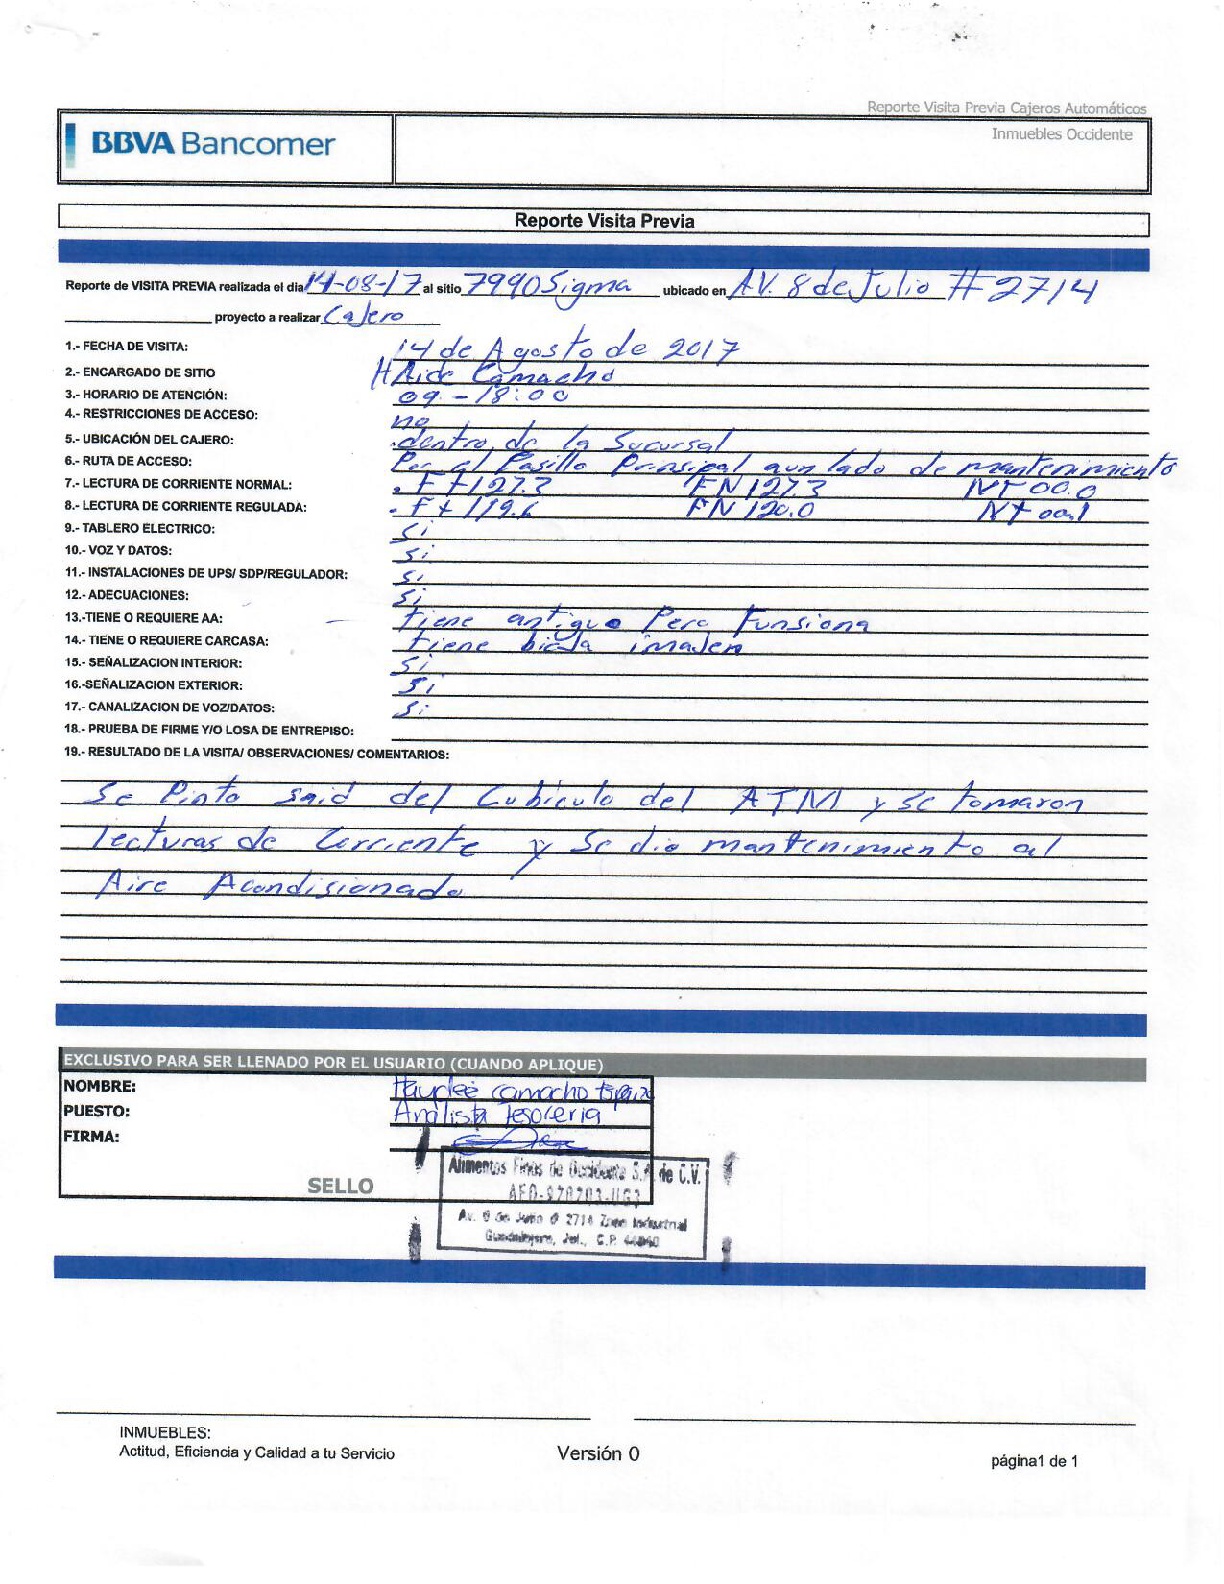 Reporte Visita Previa Cajeros Automáticos
BBVA Bancomer
Inmuebles Occidente
Reporte Visita Previa
Reporte de VISITA PREVIA realizada el dia 14-08-17 al sitio 7990 Sigma ubicado en AV. 8 de Julio # 2714
proyecto a realizar Cajero
1.- FECHA DE VISITA: 14 de Agosto de 2017
2.- ENCARGADO DE SITIO HAide Camacho
3.- HORARIO DE ATENCIÓN: 09 - 18:00
4.- RESTRICCIONES DE ACCESO: no
5.- UBICACIÓN DEL CAJERO: dentro de la Sucursal
6.- RUTA DE ACCESO: Por el Pasillo Prinsipal aun lado de mantenimiento
7.- LECTURA DE CORRIENTE NORMAL: . F t 127.3 FN 127.3 NT 00.0
8.- LECTURA DE CORRIENTE REGULADA: . F t 119.6 FN 120.0 NT 00.1
9.- TABLERO ELECTRICO: si
10.- VOZ Y DATOS: si
11.- INSTALACIONES DE UPS/ SDP/REGULADOR: si
12.- ADECUACIONES: si
13.-TIENE O REQUIERE AA: tiene antiguo Pero Funsiona
14.- TIENE O REQUIERE CARCASA: tiene imajen
15.- SEÑALIZACION INTERIOR: si
16.-SEÑALIZACION EXTERIOR: si
17.- CANALIZACION DE VOZ/DATOS: si
18.- PRUEBA DE FIRME Y/O LOSA DE ENTREPISO:
19.- RESULTADO DE LA VISITA/ OBSERVACIONES/ COMENTARIOS:
Se Pinto del Cubiculo del ATM y se tomaron
lecturas de Corriente y Se dio mantenimiento al
Aire Acondisionado
EXCLUSIVO PARA SER LLENADO POR EL USUARIO (CUANDO APLIQUE)
NOMBRE: Haydeé camacho
PUESTO: Analista Tesoreria
FIRMA:
SELLO
Alimentos Finos de Occidente S.A. de C.V.
Av. 8 de Julio # 2714 Zona Industrial
Guadalajara, Jal., C.P. 44940
INMUEBLES:
Actitud, Eficiencia y Calidad a tu Servicio
Versión 0
página1 de 1